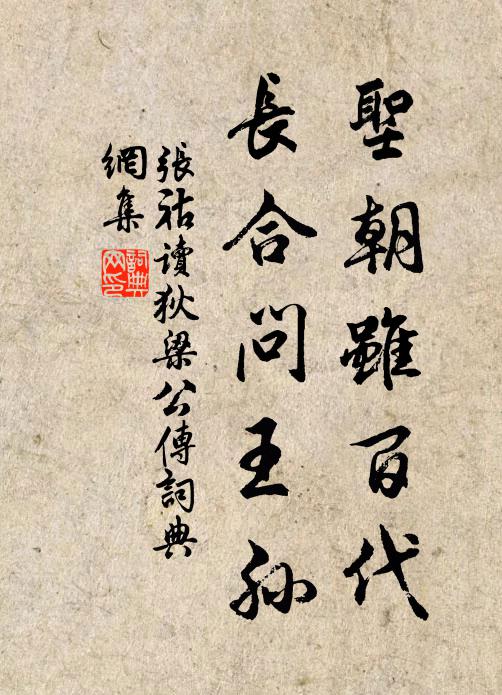 聖朝雖百代
長合問王孫
張祜讀狄梁公傳詞典
網集
詞典
网印